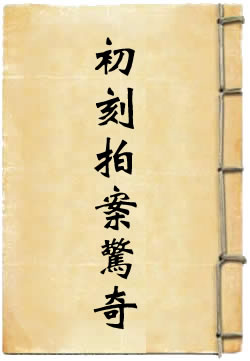 初刻拍案驚奇